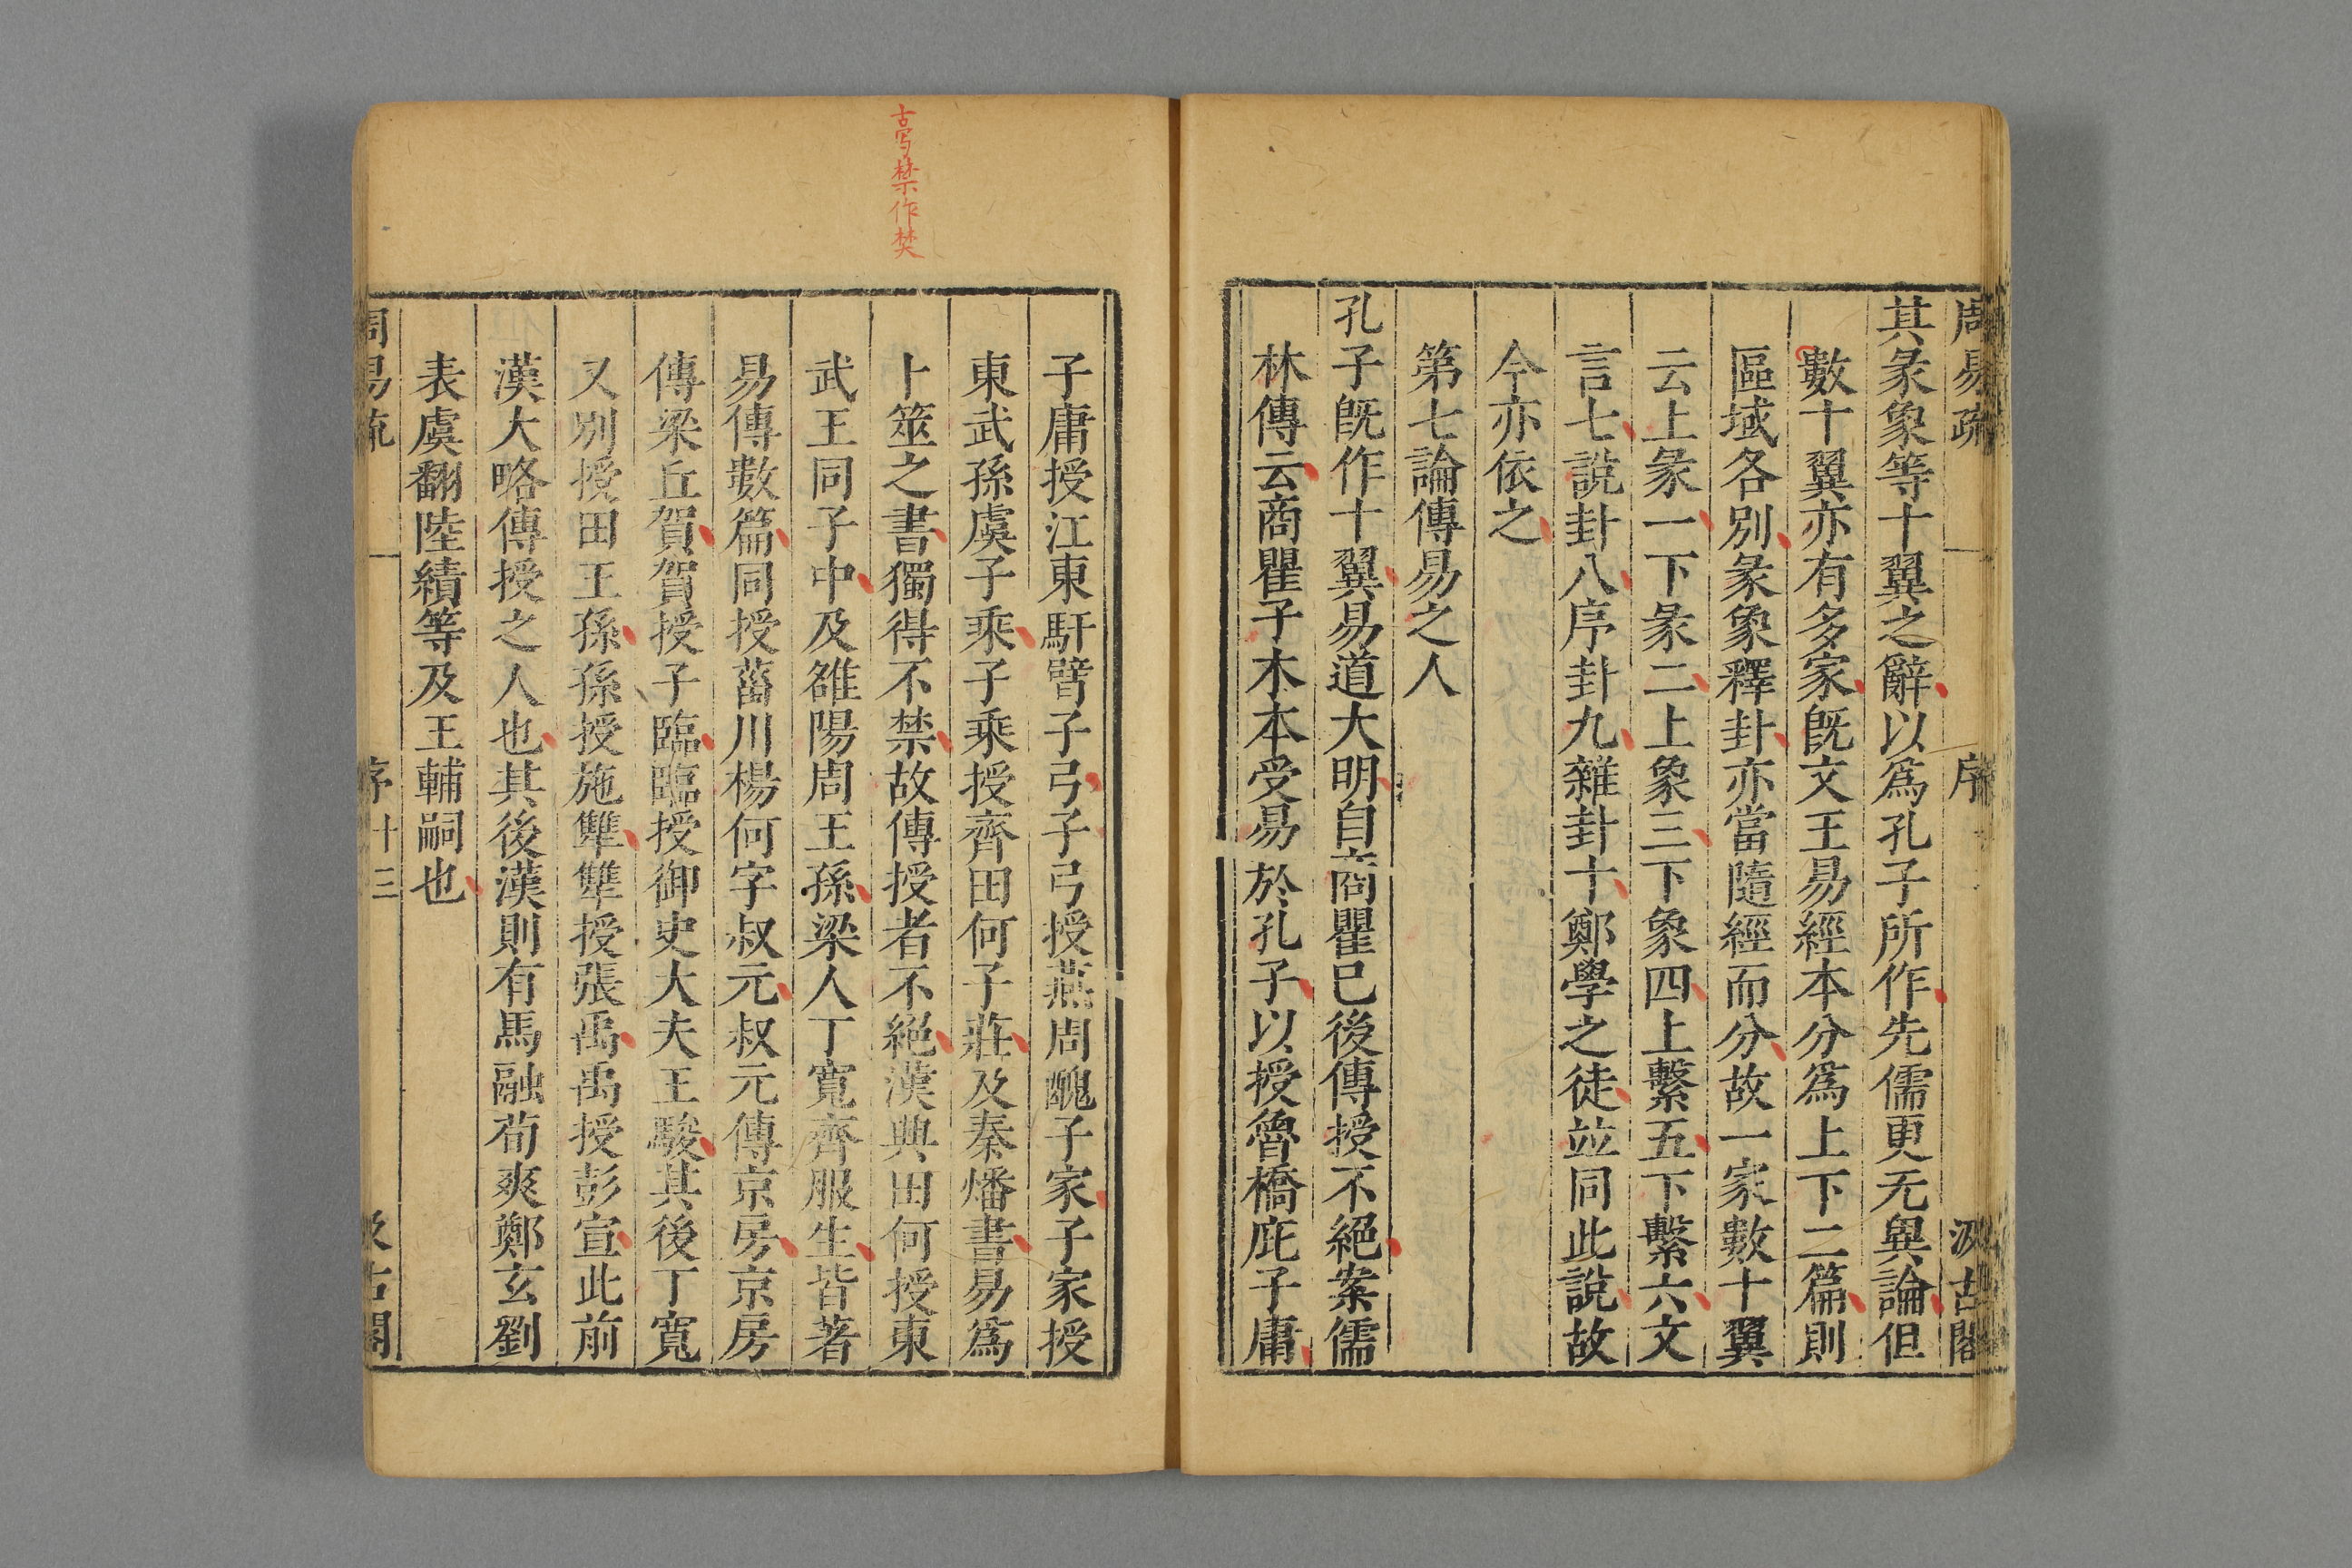 周易疏 序 汲古閣
其彖象等十翼之辭以爲孔子所作先儒更无異論但
數十翼亦有多家旣文王易經本分爲上下二篇則
區域各別彖象釋卦亦當隨經而分故一家數十翼
云上彖一下彖二上象三下象四上繫五下繫六文
言七說卦八序卦九雜卦十鄭學之徒並同此說故
今亦依之
第七論傳易之人
孔子旣作十翼易道大明自商瞿已後傳授不絕案儒
林傳云商瞿子木本受易於孔子以授魯橋庇子庸
古寫禁作焚
子庸授江東馯臂子弓子弓授燕周醜子家子家授
東武孫虞子乘子乘授齊田何子莊及秦燔書易爲
卜筮之書獨得不禁故傳授者不絕漢興田何授東
武王同子中及雒陽周王孫梁人丁寬齊服生皆著
易傳數篇同授菑川楊何字叔元叔元傳京房京房
傳梁丘賀賀授子臨臨授御史大夫王駿其後丁寬
又別授田王孫孫授施犨犨授張禹禹授彭宣此前
漢大略傳授之人也其後漢則有馬融荀爽鄭玄劉
表虞翻陸績等及王輔嗣也
周易疏 序 十三 汲古閣